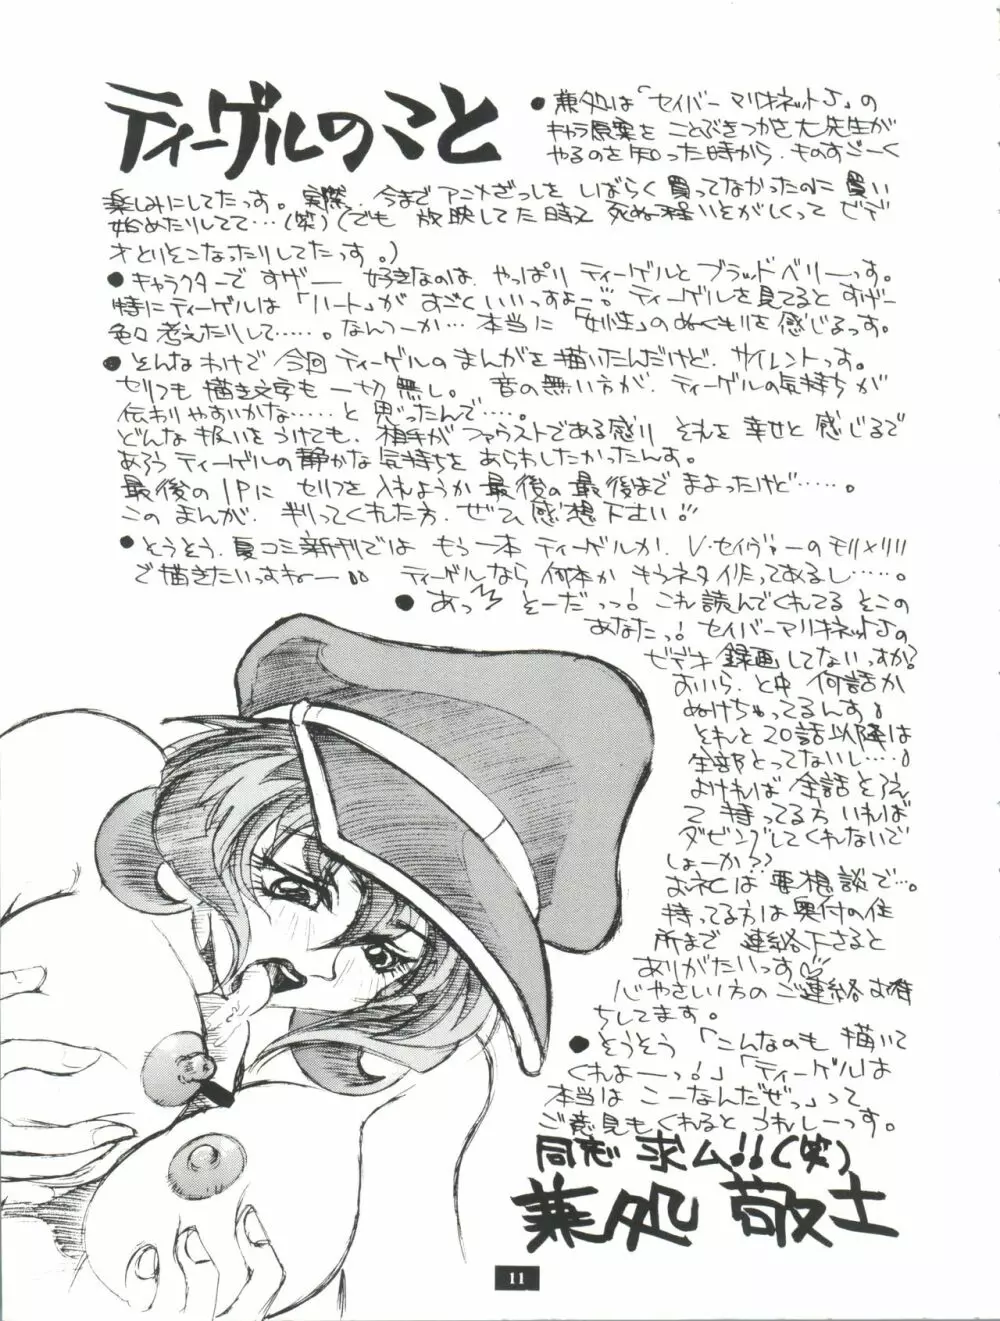 ティーゲルのこと
●兼処は「セイバーマリオネットJ」の
キャラ原案を ことぶきつかさ大先生が
やるのを知った時から、ものすごーく
楽しみにしてたっす。実際、今までアニメざっしを しばらく買ってなかったのに買い
始めたりしてて…(笑)(でも 放映してた時て 死ぬ程いそがしくって ビデ
オとりそこなったりしてたっす。)
●キャラクターで すげー 好きなのは、やっぱり ティーゲルと ブラッドベリーっす。
特にティーゲルは「ハート」が すごくいいっすよー!! ティーゲルを見てると すげー
色々考えたりして……。なんつーか…本当に「女性」のぬくもりを感じるっす。
●そんなわけで 今回 ティーゲルの まんがを 描いたんだけど、サイレントっす。
セリフも 描き文字も 一切無し。音の無い方が、ティーゲルの気持ちが
伝わりやすいかな……と 思ったんで…。
どんな扱いをうけても、相手が ファウストである限り それを 幸せと 感じるで
あろう ティーゲルの静かな気持ちを あらわしたかったんす。
最後の1Pに セリフを入れようか 最後の最後まで まよったけど……。
この まんが、判ってくれた方、ぜひ感想下さい!!
●そうそう、夏コミ新刊では もう一本 ティーゲルか、V・セイヴァーのモリ×リリ
で描きたいっすねー!! ティーゲルなら 何本か もうネタ作ってあるし……。
●あっ そーだっっ! これ読んでくれてる そこの
あなたっ! セイバーマリオネットJの
ビデオ録画してないっすか?
おいら、と中 何話か
ぬけちゃってるんす!
それと 20話以降は
全部とってないし…!
よければ 全話そろえ
て 持ってる方 いれば
ダビングしてくれないで
しょーか??
お礼は 要相談で…。
持ってる方は奥付の住
所まで 連絡下さると
ありがたいっす♡
心やさしい方の ご連絡お待
ちしてます。
●そうそう 「こんなのも 描いて
くれよーっ!」「ティーゲルは
本当は こーなんだぜっ」って
ご意見もくれると うれしーっす。
同志 求ム!!(笑)
兼処 敬士
11